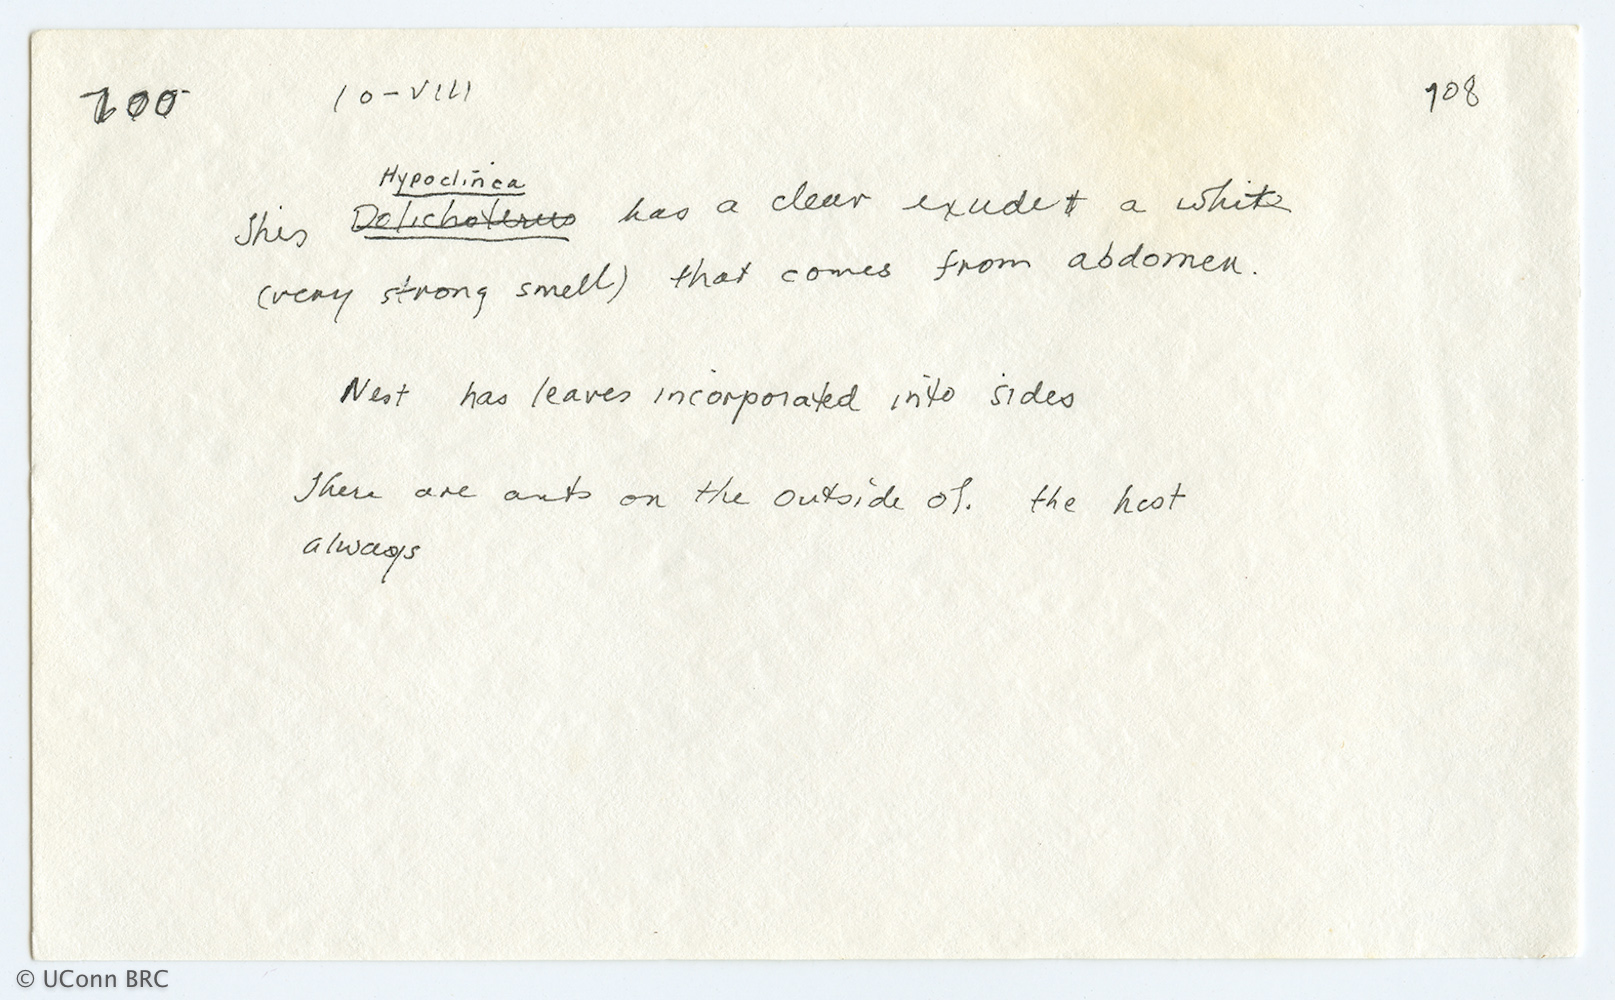 700 10-VIII 108
Hypoclinea
This Dolichoderus has a clear exudet a white
(very strong smell) that comes from abdomen.
Nest has leaves incorporated into sides
There are ants on the outside of. the
always
© UConn BRC